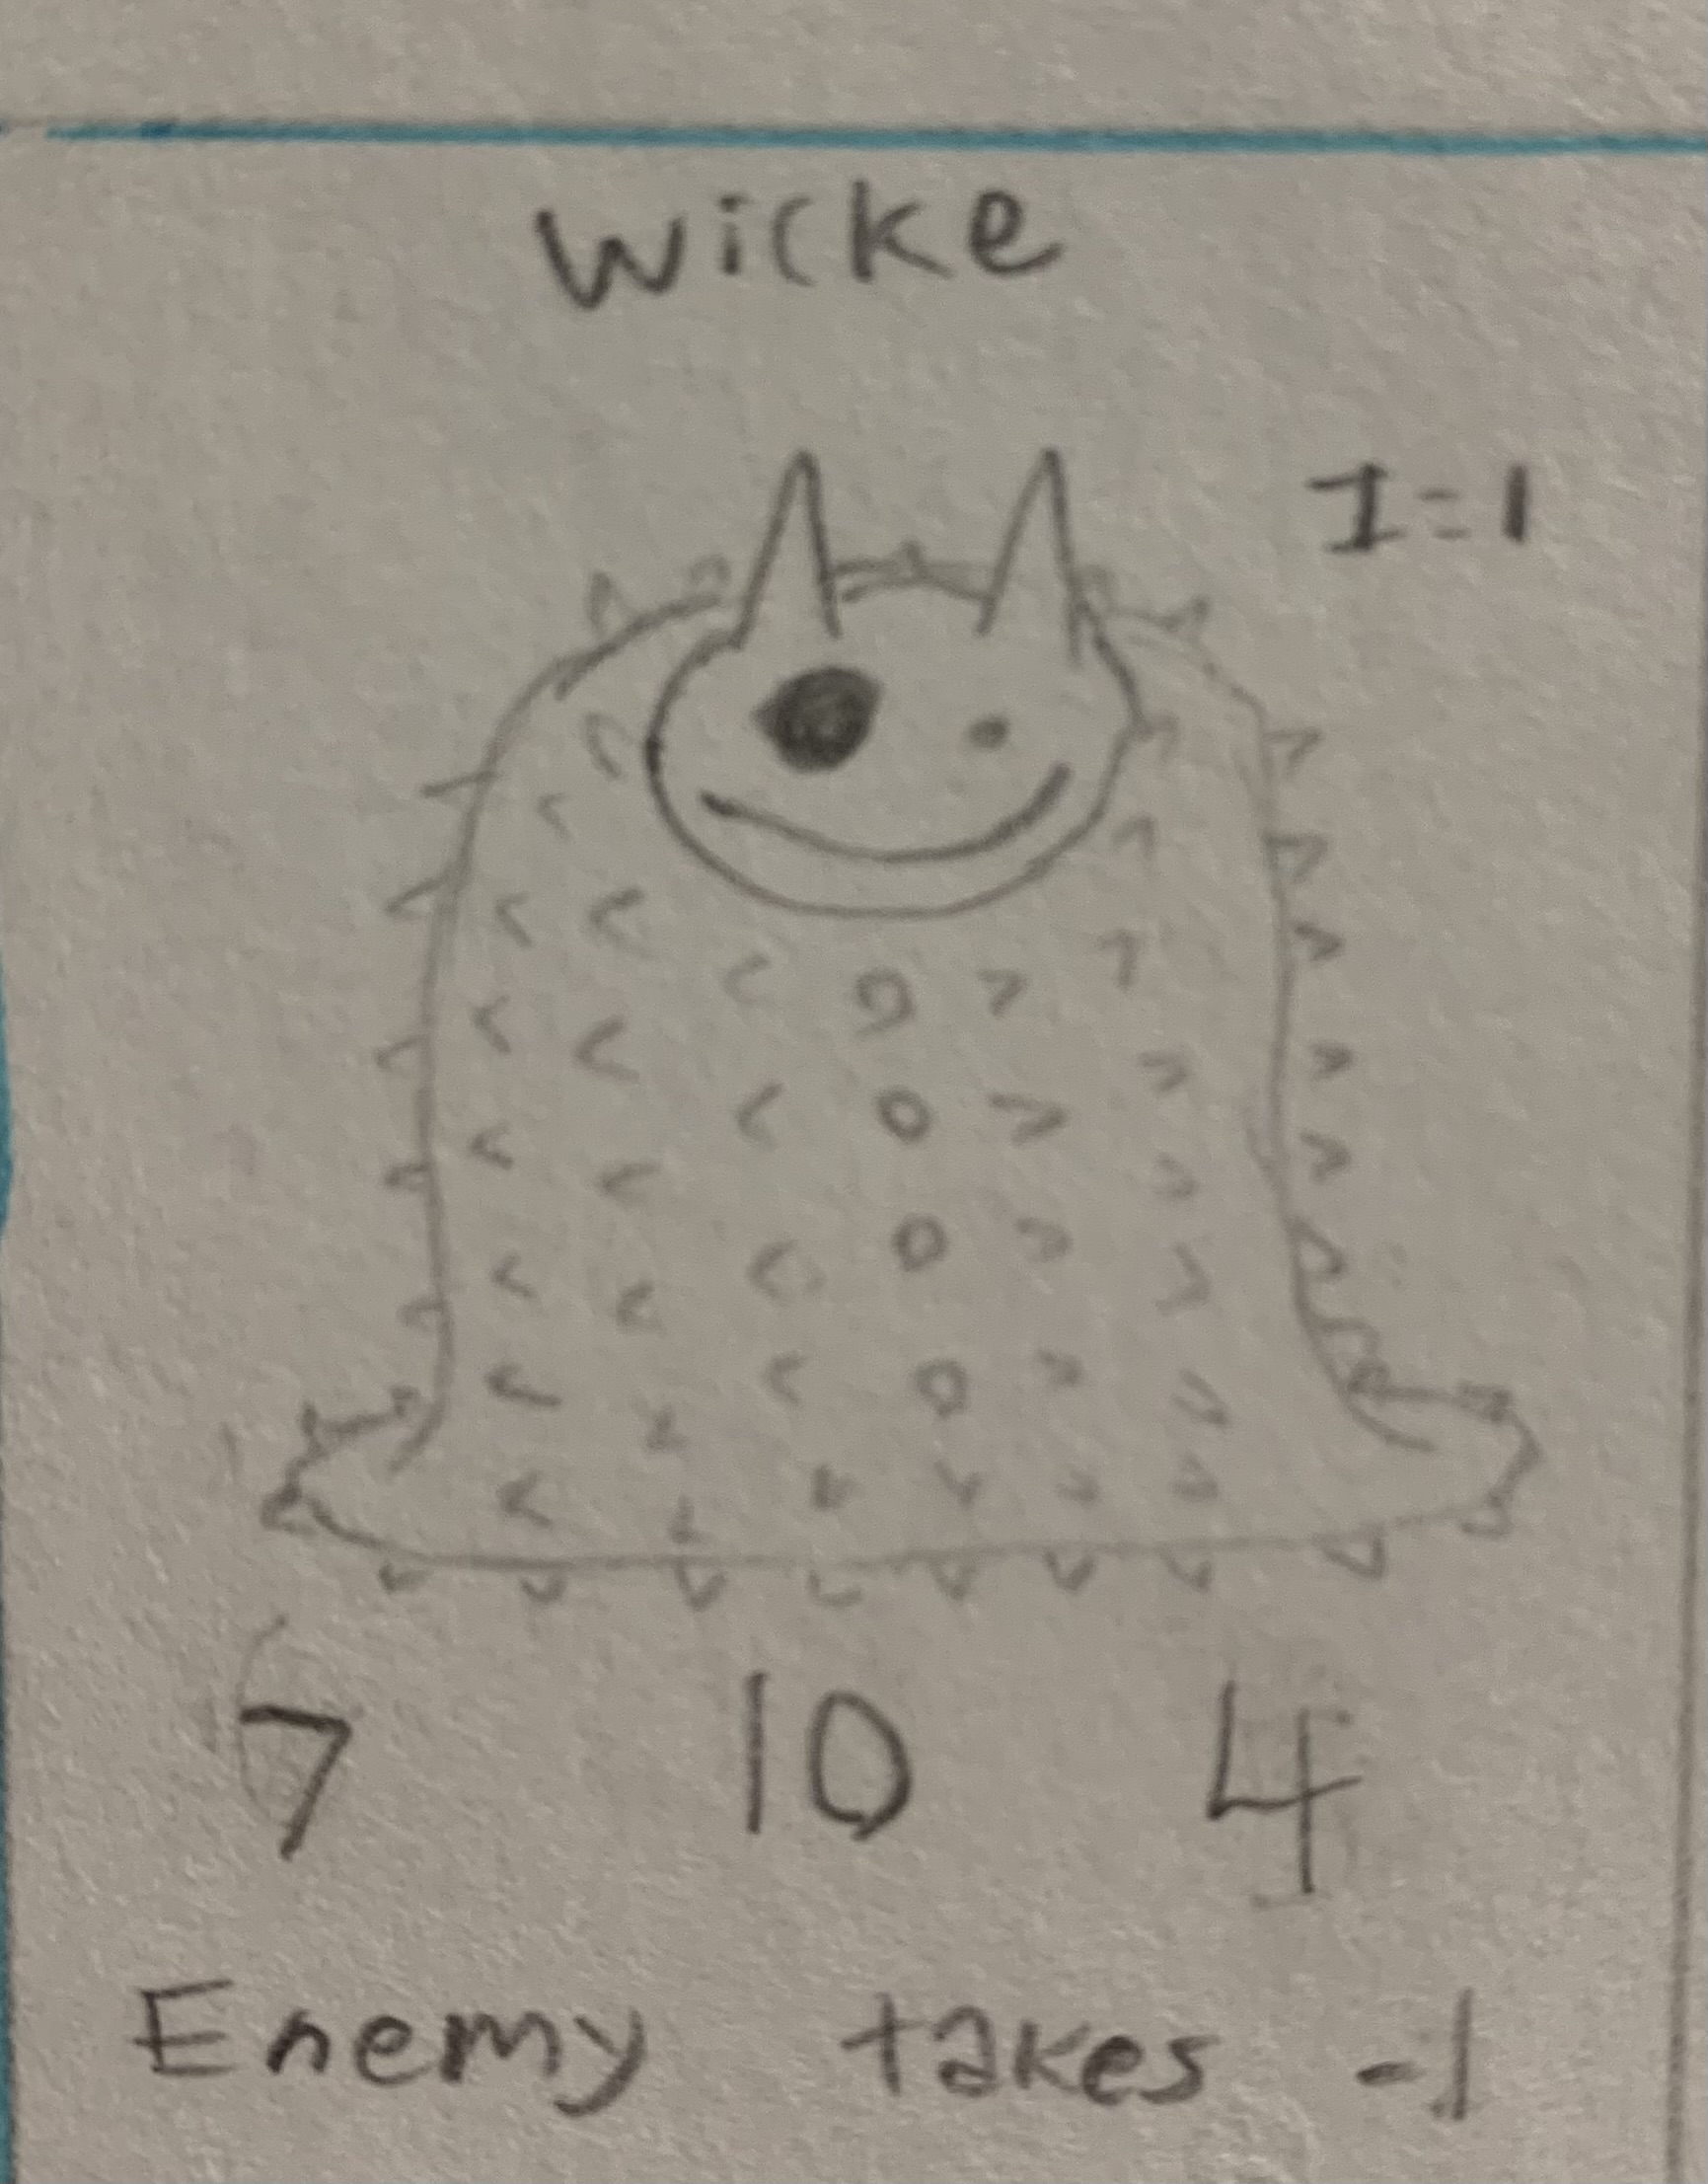 Wicke
I=1
7 10 4
Enemy takes -1